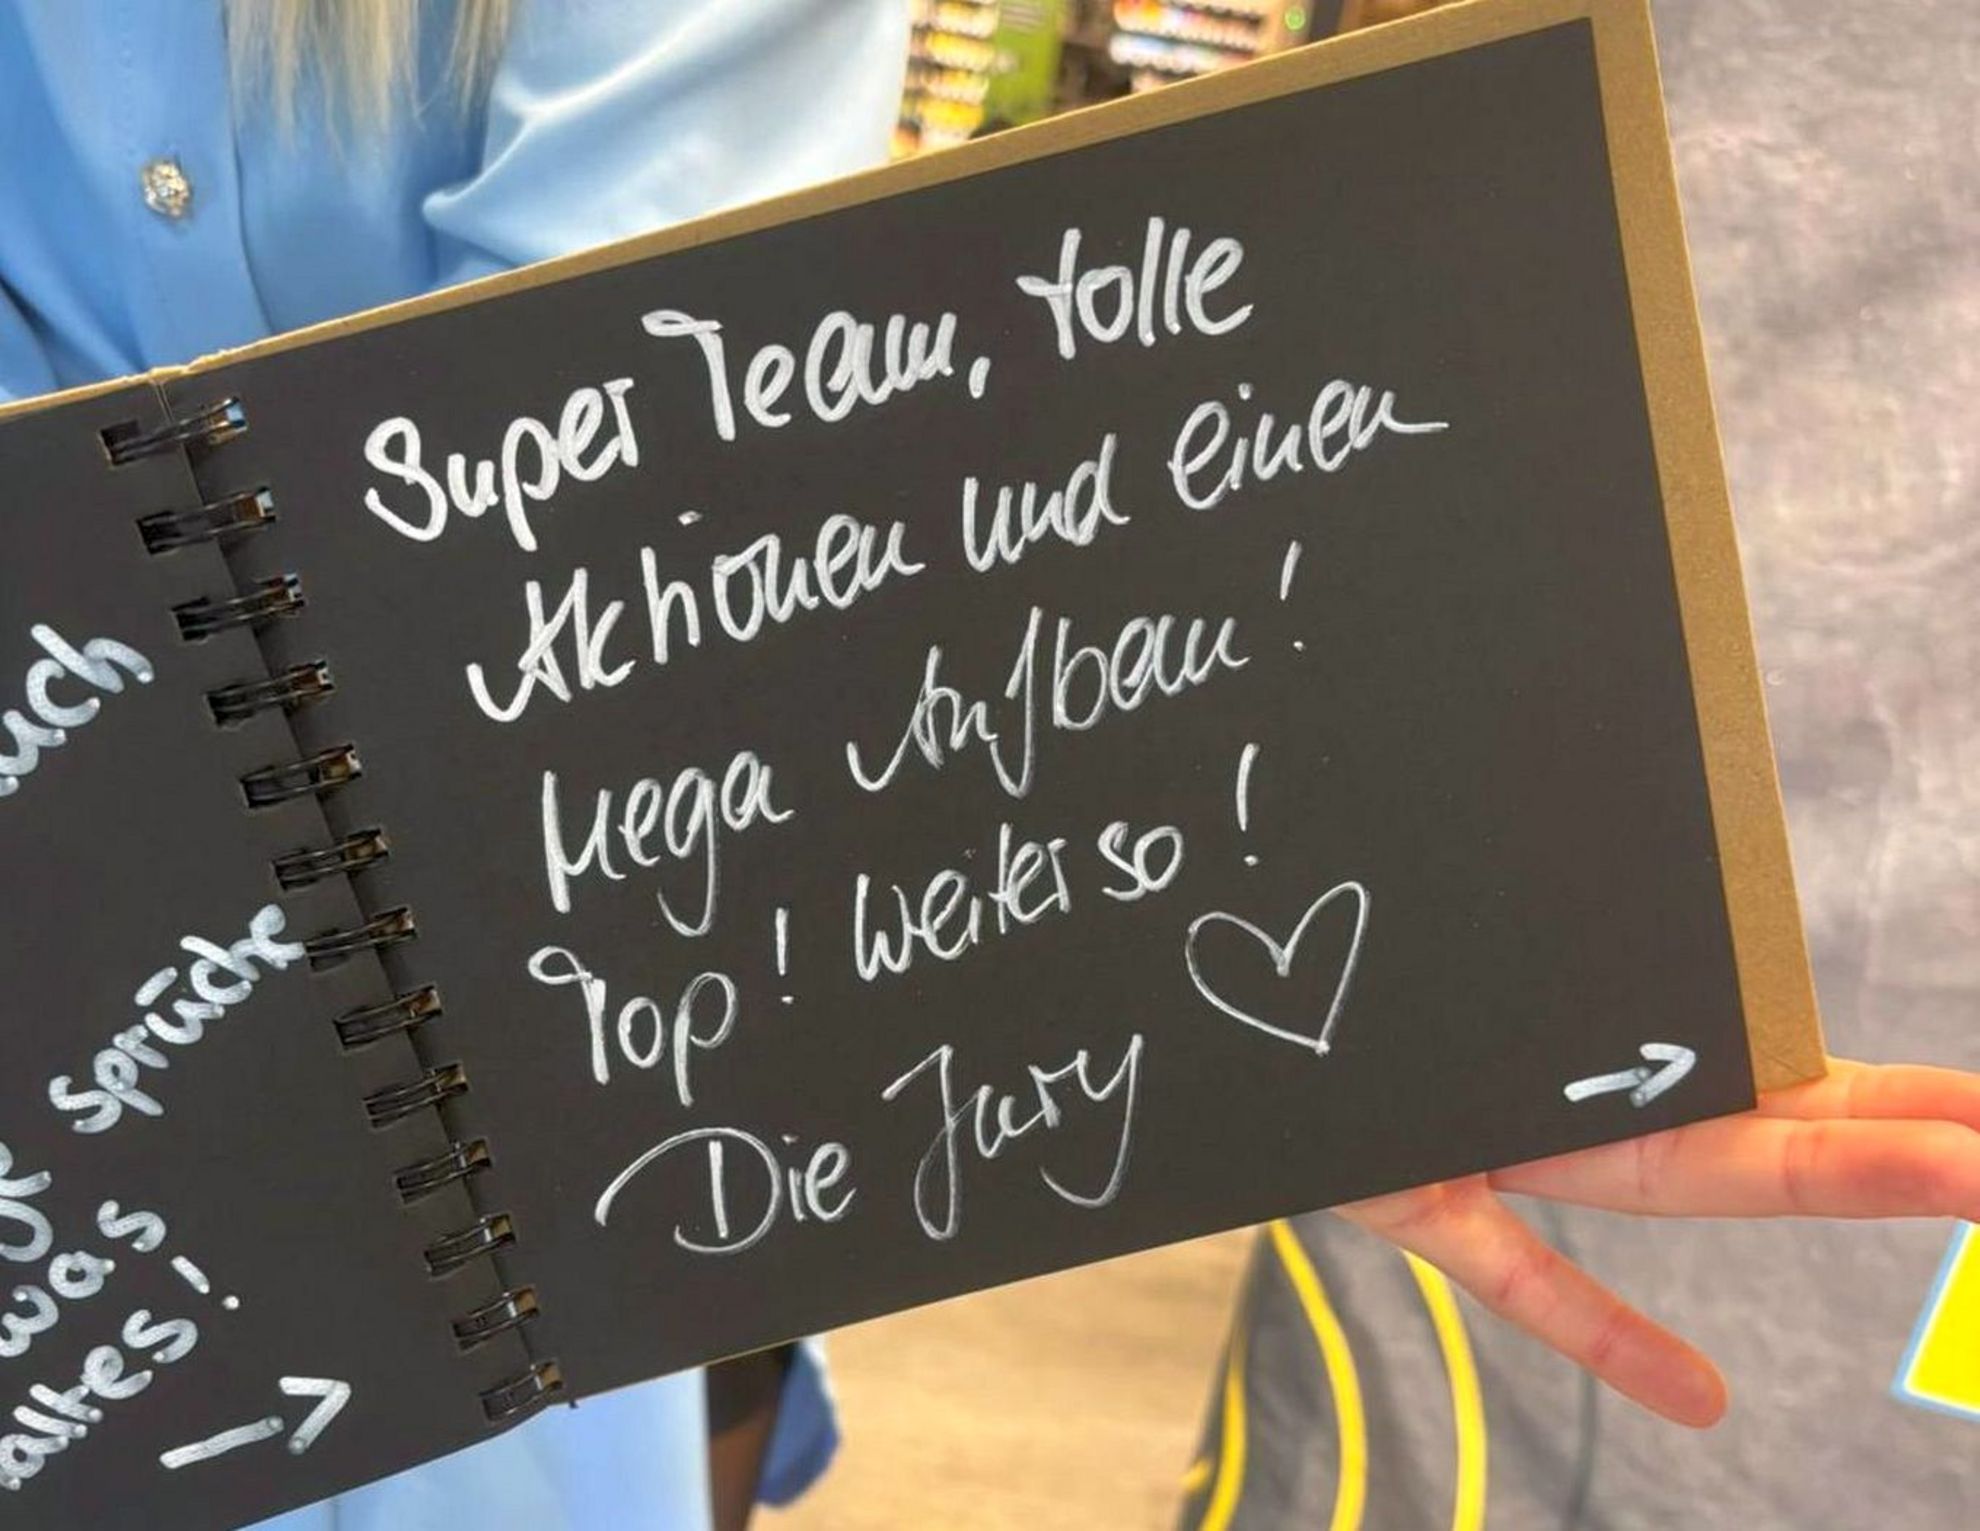 uch
sprüche
was
altes!
Super Team, tolle
Aktionen und einen
Mega Aufbau!
Top! Weiter so!
Die Jury